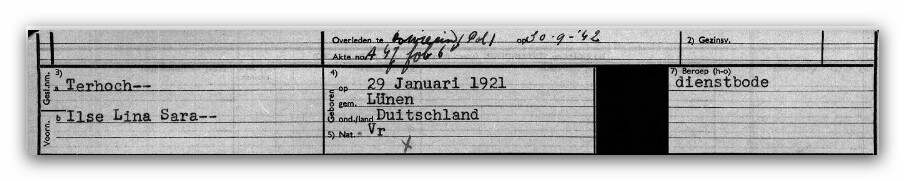 Overleden te Oswiecim (Pol) op 30-9-'42
2) Gezinsv.
Akte no. A 47 fol 6
3)
Gesl.nm.
a Terhoch--
Voorn.
b Ilse Lina Sara--
4)
Geboren
op 29 Januari 1921
gem. Lünen
ond./land Duitschland
5) Nat. Vr
x
7) Beroep (h-o)
dienstbode